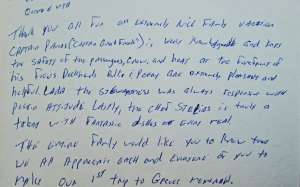 Thank you all for an extremely nice family vacation
Captain Panos ("Captain Good Food") is very knowledgeable and kept
the safety of the passengers, crew, and boat at the forefront of
his focus Deckhands Billie & Popay are extremely pleasant and
helpful. Lada the stewardess was always response with
positive attitude Lastly, the chef Stelios is truly a
token with fantastic dishes at every meal
The entire family would like you to know that
we all appreciate each and everyone of you to
make our 1st trip to Greece memorable.